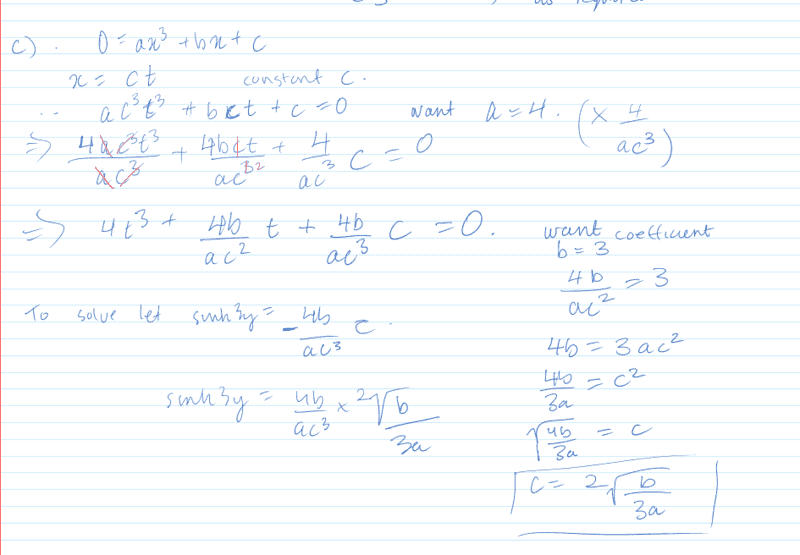 as required
c). 0 = ax³ + bx + c
x = ct constant c.
∴ ac³t³ + bct + c = 0 want a = 4. (× 4/ac³)
⇒ 4ac³t³/ac³ + 4bct/ac³² + 4/ac³ c = 0
⇒ 4t³ + 4b/ac² t + 4b/ac³ c = 0.
want coefficient
b = 3
4b/ac² = 3
4b = 3ac²
4b/3a = c²
√(4b/3a) = c
c = 2√(b/3a)
To solve let sinh3y = -4b/ac³ c.
sinh3y = 4b/ac³ × 2√(b/3a)